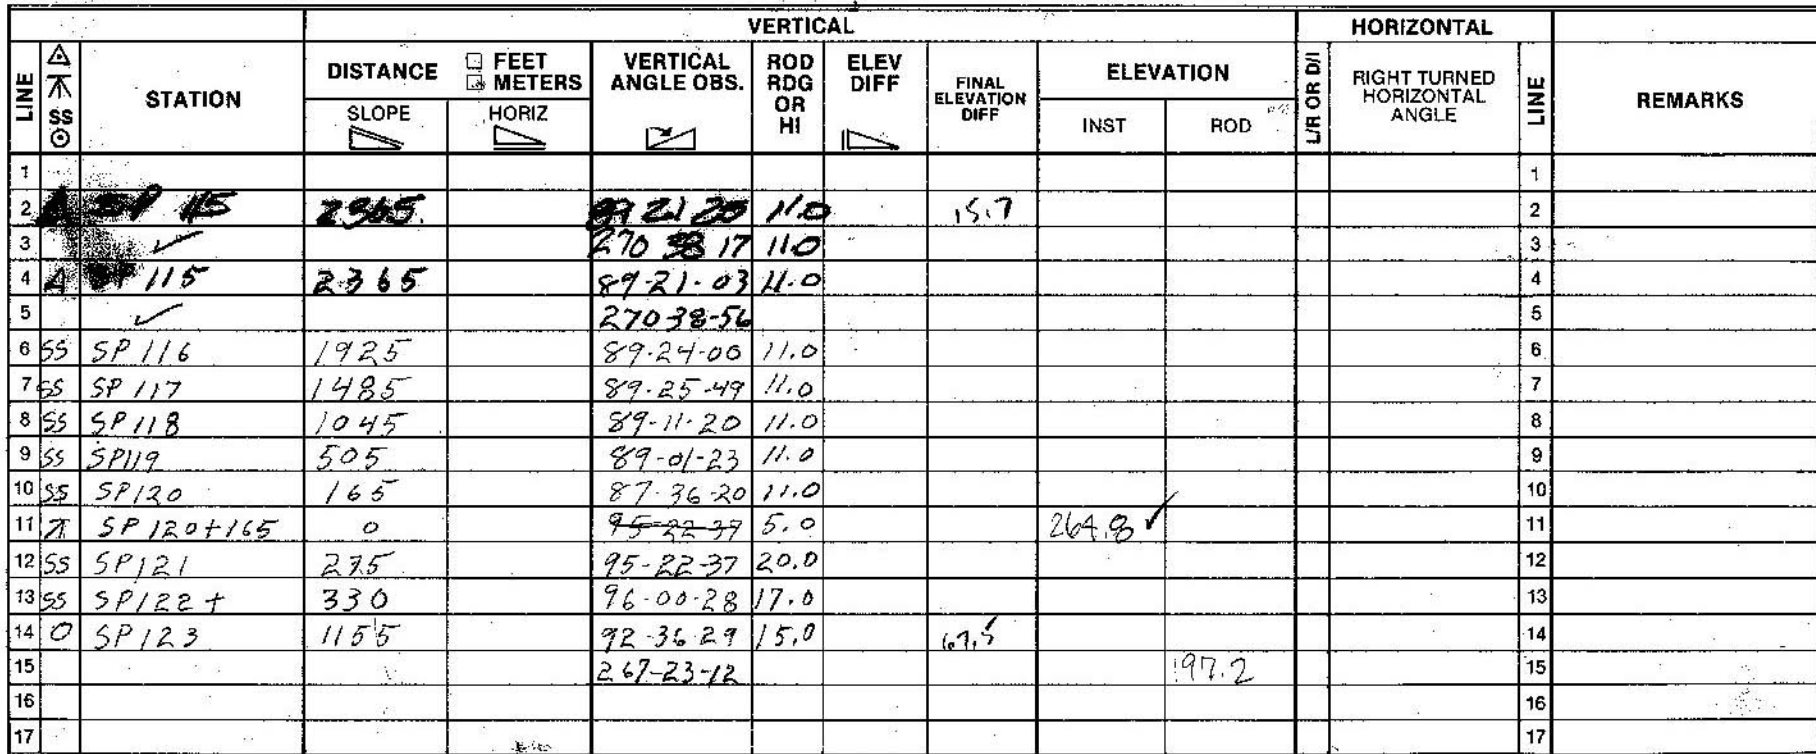 VERTICAL HORIZONTAL
LINE SS STATION DISTANCE FEET METERS VERTICAL ANGLE OBS. ROD RDG OR HI ELEV DIFF FINAL ELEVATION DIFF ELEVATION L/R OR D/I RIGHT TURNED HORIZONTAL ANGLE LINE REMARKS
SLOPE HORIZ INST ROD
1 1
2 Δ SP 115 2365. 89 21 20 11.0 15.7 2
3 ✓ 270 38 17 11.0 3
4 Δ SP 115 2365 89-21-03 11.0 4
5 ✓ 270-38-56 5
6 SS SP 116 1925 89-24-00 11.0 6
7 SS SP 117 1485 89-25-49 11.0 7
8 SS SP 118 1045 89-11-20 11.0 8
9 SS SP119 505 89-01-23 11.0 9
10 SS SP120 165 87-36-20 11.0 10
11 SP 120+165 0 95-22-37 5.0 264.8 ✓ 11
12 SS SP121 275 95-22-37 20.0 12
13 SS SP122+ 330 96-00-28 17.0 13
14 O SP123 1155 92-36-29 15.0 67.5 14
15 267-23-12 197.2 15
16 16
17 17